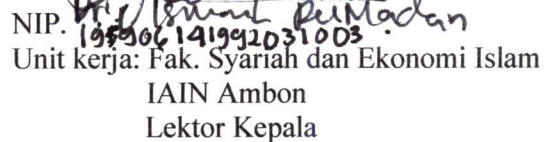 Ismail Rumadan
NIP. 195906141992031003
Unit kerja: Fak. Syariah dan Ekonomi Islam
IAIN Ambon
Lektor Kepala